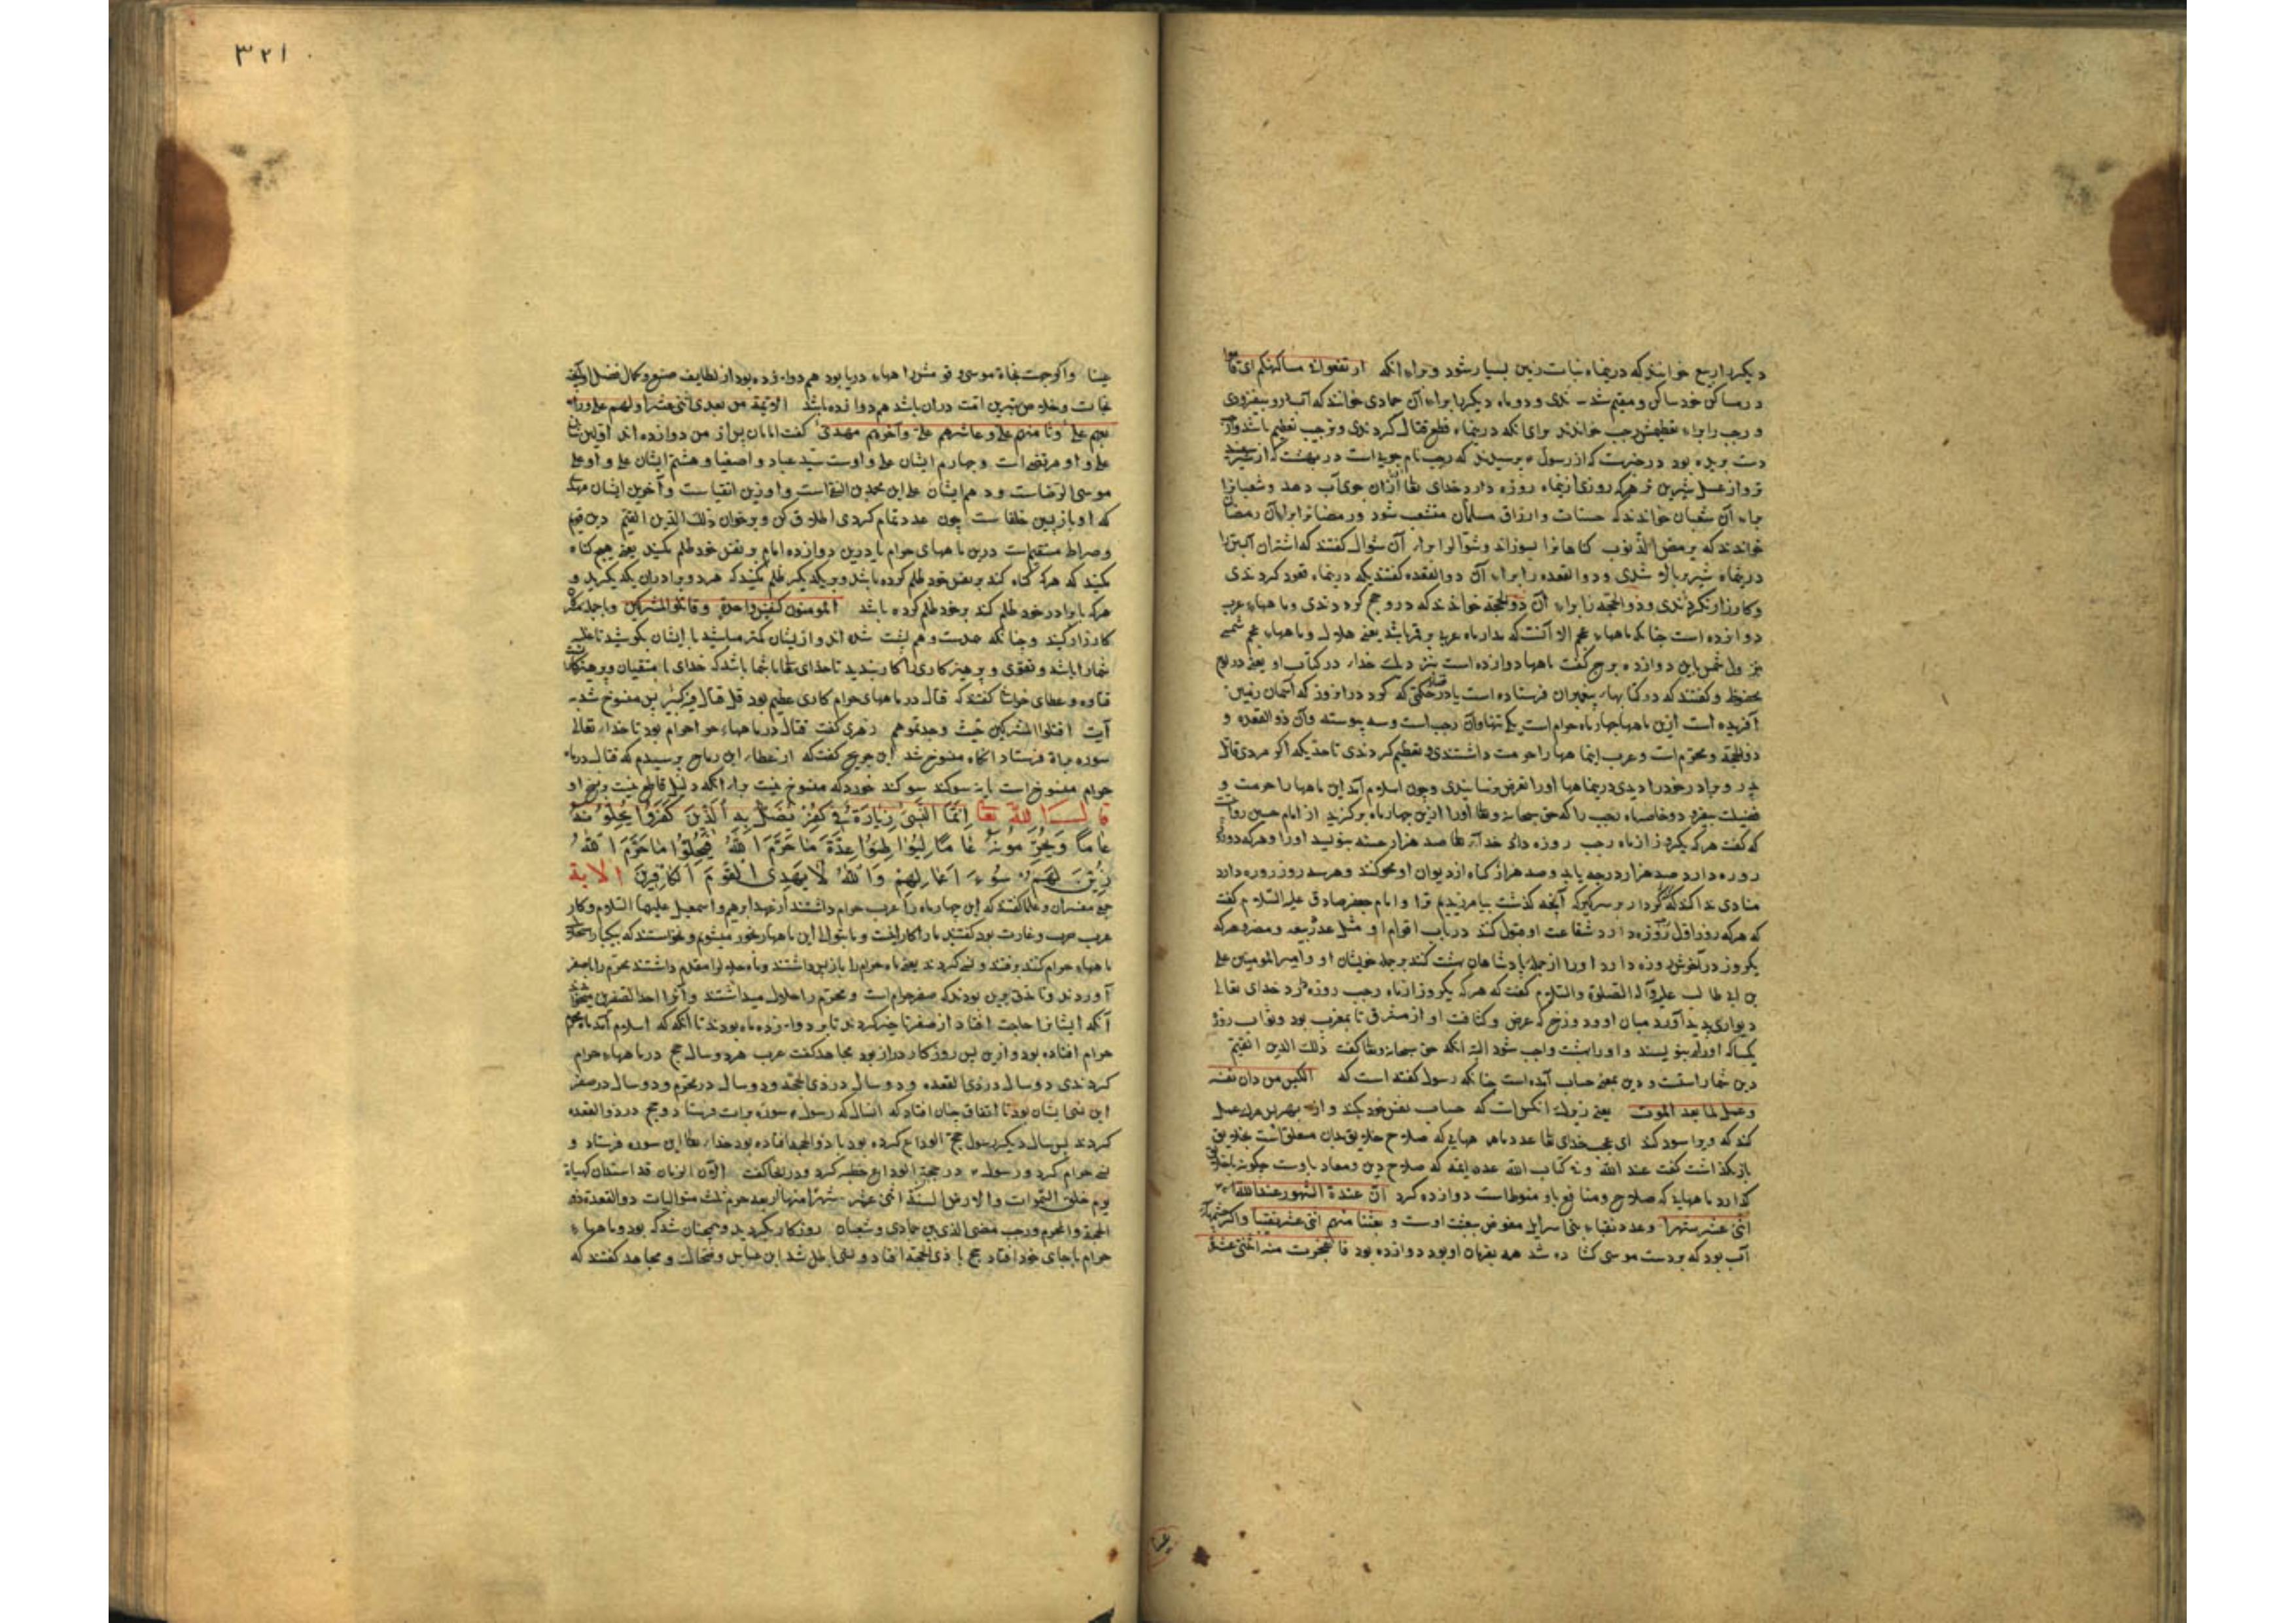 دیکر را ربیع خوانند که درین ماه نبات زمین بسیار شود و براء انکه ارتفعوا فی مساکنکم ای اقاموا
در مساکن خود ساکن و مقیم شدندی و دو ماه دیکر را براء آن جمادی خوانند که آب درو بیفزودی
و رجب را براء تعظیمش رجب خوانند برای انکه درین ماه قطع قتال کردندی و ترجیب تعظیم باشد
دست بریده بود در خبرست که از رسول پرسیدند که رجب نام جویست در بهشت که از شیر سفید
تر و از عسل شیرین تر هرکه روزی ازین ماه روزه دارد خدای تعا از آن جوی آب دهد و شعبانرا
براء آن شعبان خواندند که حسنات و ارزاق مسلمان منشعب شود و رمضانرا براء آن رمضان
خواندند که یرمض الذنوب کناهانرا بسوزاند و شوّالرا براء آن شوال کفتند که اشتران آبستن را
درین ماه شیر بالا شدی و ذو القعده را براء آن ذو القعده کفتند که درین ماه قعود کردندی
و کارزار نکردندی و ذو الحجّه را براء آن ذو الحجّه خوانند که درو حج کردندی و ماههاء عرب
دوازده است چنانکه ماههاء عجم الا آنست که مدار ماه عرب بر قمر باشد یعنی هلال و ماههاء عجم شمسی
نزول شمس باین دوازده برج کفت ماهها دوازده است بنزدیک خدا در کتاب او یعنی در لوح
محفوظ و کفتند که در کتابهاء پیغمبران فرستاده است یا در حکمی که کرد در آن روز که آسمان و زمین
آفریده است ازین ماهها چهار ماه حرام است یکی تنها و آن رجب است و سه پیوسته و آن ذو القعده و
ذو الحجّه و محرّم است و عرب این ماهها را حرمت داشتندی و تعظیم کردندی تا حدیکه اکر مردی قاتل
پدر و برادر خود را دیدی درین ماهها او را تعرض نرسانیدی و چون اسلام آمد این ماهها را حرمت و
فضیلت بیفزود و خاصه ماه رجب را که حق سبحانه و تعا او را ازین چهار ماه برکزید از امام حسین روایت
که کفت هرکه یکروز از ماه رجب روزه دارد خدای تعا صد هزار حسنه بنویسد او را و هرکه دو روز
روزه دارد صد هزار درجه یابد و صد هزار کناه از دیوان او محو کنند و هرسه روز روزه دارد
منادی ندا کند که کردار بر سر کیر که آنچه کذشت بیامرزیدم ترا و امام جعفر صادق علیه السّلام کفت
که هرکه روز اول روزه دارد شفاعت او قبول کنند در باب اقوام او مثل عدد ربیعه و مضر و هرکه
یکروز در آخرش روزه دارد او را از جمله پادشاهان بهشت کنند بر جمله خویشان او و امیر المومنین علی
بن ابی طالب علیه و آله الصّلوة والسّلام کفت که هرکه یکروز از ماه رجب روزه دارد خدای تعالی
دیواری پدید آورد میان او و دوزخ که عرض و کثافت او از مشرق تا بمغرب بود و ثواب روزهٔ
یکساله او را بنویسند و او را بهشت واجب شود البته انکه حق سبحانه و تعا کفت ذلک الدین القیّم
دین شمار راستست و دین بمعنی حساب آمده است چنانکه رسول کفته است که الکیّس من دان نفسه
و عمل لما بعد الموت یعنی زیرک انکس است که حساب نفس خود بکند و از بهر بعد مرک عمل
کند که ویرا سود کند ای عجب خدای تعا عدد ماههایی که صلاح خلایق بدان معلق است بخلایق
بازنکذاشت کفت عند الله و فی کتاب الله عدد ایمه که صلاح دین و معاد باوست چکونه بخلایق
کذارد ماههایی که صلاح و منافع باو منوط است دوازده کرد انّ عدّة الشهور عند الله
اثنی عشر شهرا و عدد نقباء بنی اسرایل مفوض ببعثت اوست و بعثنا منهم اثنی عشر نقیبا و اکر چشمهای
آب بود که بر دست موسی کشاده شد همه بفرمان او بود دوازده بود فانفجرت منه اثنتی عشرة
عینا واکر جهت نجاة موسی و قومش راهها در دریا بود هم دوازده بود از لطایف صنع و کمال فضل
نجات و خلاص بهترین امّت در آن باشد هم دوازده باشد الائمّة من بعدی اثنی عشر اولهم علی و رابعهم
علی و ثامنهم علی و عاشرهم علی و آخرهم مهدی کفت امامان پس از من دوازده اند اولین
علی و او مرتضی است و چهارم ایشان علی و اوست سیّد عباد و اصفیا و هشتم ایشان علی و او علی
موسی الرّضاست و دهم ایشان علی ابن محمد بن التقی است و او زین اتقیا ست و آخرین ایشان مهدی
که او بازپسین خلفا ست چون عدد تمام کردی اطلاق کن و برخوان ذلک الدّین القیّم دین قیّم
و صراط مستقیم است درین ماههای حرام یا درین دوازده امام بر نفس خود ظلم مکنید یعنی هیچ کناه
مکنید که هرکه کناه کند بر نفس خود ظلم کرده باشد و بر یکدیکر ظلم مکنید که هر دو برادران یکدیکرید و
هرکه با برادر خود ظلم کند بر خود ظلم کرده باشد المومنون کنفس واحدة و قاتلو المشرکین و با جمله مشرکان
کارزار کنید و چنانکه همدست و هم پشت شده اند و از ایشان کمتر مباشید با ایشان بکوشید تا غلبه
شمارا باشد و تقوی و پرهیزکاری را کار بندید تا خدای تعا با شما باشد که خدای با متقیان و پرهیزکارانست
قتاده و عطای خراسانی کفتند که قتال در ماههای حرام کاری عظیم بود قل قتال فیه کبیر پس منسوخ شد بـ
آیت اقتلوا المشرکین حیث وجدتموهم زهری کفت قتال در ماههاء حرام حرام بود تا خدای تعالی
سوره براة فرستاد انکاه منسوخ شد ابن جریح کفت که از عطاء ابن رباح پرسیدم که قتال در ماه
حرام منسوخ است یا نه سوکند سوکند خورد که منسوخ نیست براء انکه دلیل قاطع نیست بر نسخ او
قال الله تعا اِنَّمَا النَّسِیُٔ زِیَادَةٌ فِی الکُفْرِ یُضَلُّ بِهِ الَّذِینَ کَفَرُوا یُحِلُّونَهُ
عَامًا وَیُحَرِّمُونَهُ عَامًا لِیُوَاطِئُوا عِدَّةَ مَا حَرَّمَ اللهُ فَیُحِلُّوا مَا حَرَّمَ اللهُ
زُیِّنَ لَهُمْ سُوءُ اَعْمَالِهِمْ وَاللهُ لَا یَهْدِی القَوْمَ الکَافِرِینَ الآیة
جمع مفسران و علما کفتند که این چهار ماه را عرب حرام داشتند از عهد ابرهیم و اسمعیل علیهما السّلام و کار
عرب حرب و غارت بود کفتند مارا کار اینست و ما بتوالی این ماهها رنجور میشویم و نخواستند که بیکبار
ماههاء حرام کنند برفتند و نسی کردند یعنی ماه حرام را بازپس داشتند و ماه حلال را مقدم داشتند محرّم را با صفر
آوردند و تا مدتی برین بودند که صفر حرام است و محرّم را حلال میداشتند و آنرا احد الصفرین
آنکه ایشانرا حاجت افتاد از صفر تاخیر کردند تا بر دوازده ماه بودند تا انکه که اسلام آمد ماه محرم
حرام افتاده بود و ازین پس روزکار دراز بود مجاهد کفت عرب هر دو سال حج در ماههاء حرام
کردندی دو سال در ذی القعده و دو سال در ذی الحجّه و دو سال در محرّم و دو سال در صفر
این نسی ایشان بود تا اتفاق چنان افتاد که انسال که رسول سورهٔ برات فرستاد و حج در ذو القعده
کردند پس سال دیکر رسول حجّ الوداع کرده بود با ذو الحجه افتاده بود خدای تعا این سوره فرستاد و
نسی حرام کرد و رسول در حجة الوداع خطبه کرد و در انجا کفت الا انّ الزمان قد استدار کهیئة
یوم خلق السّموات والارض السنة اثنی عشر شهرا منها اربعة حرم ثلث متوالیات ذو القعدة و ذو
الحجة والمحرم و رجب مضر الذی بین جمادی و شعبان روزکار بکردید و همچنان شد که بود و ماههاء
حرام باجای خود افتاد حج با ذی الحجه افتاد و نسی باطل شد ابن عباس و ضحاک و مجاهد کفتند که
۳۲۱